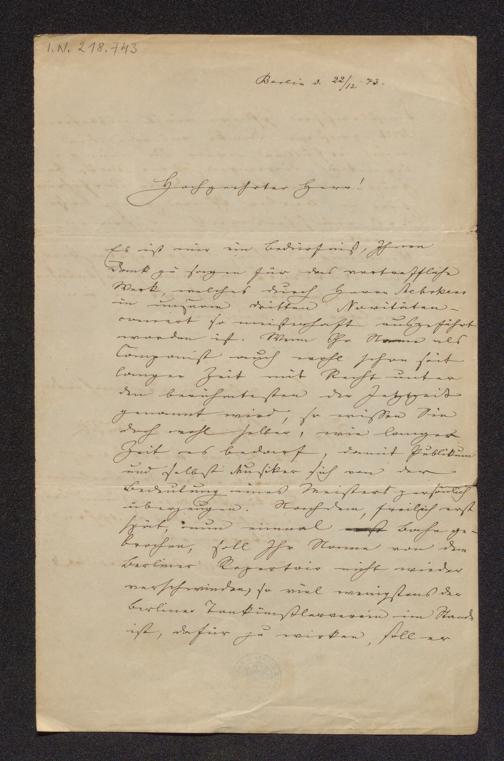 I.N. 218.743
Berlin d. 22/12 73.
Hochgeehrter Herr!
Es ist mir ein Bedürfniß, Ihnen
Dank zu sagen für das vortreffliche
Werk, welches durch Herrn
in unserm dritten Novitäten-
concert so meisterhaft ausgeführt
worden ist. Wenn Ihr Name als
Componist auch wohl schon seit
langer Zeit mit Recht unter
den berühmtesten der Jetztzeit
genannt wird, so wissen Sie
doch wohl selber, wie langer
Zeit es bedarf, damit Publikum
und selbst Musiker sich von der
Bedeutung eines Meisters persönlich
überzeugen. Nachdem, freilich erst
spät, nun einmal Bahn ge-
brochen, soll Ihr Name von dem
Berliner Repertoir nicht wieder
verschwinden, so viel wenigstens der
Berliner Tonkünstlerverein im Stande
ist, dafür zu wirken, soll er